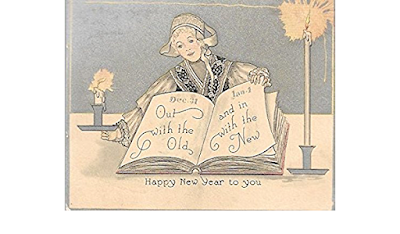 Dec. 31
Out
with the
Old,
Jan. 1
and in
with the
New
Happy New Year to you